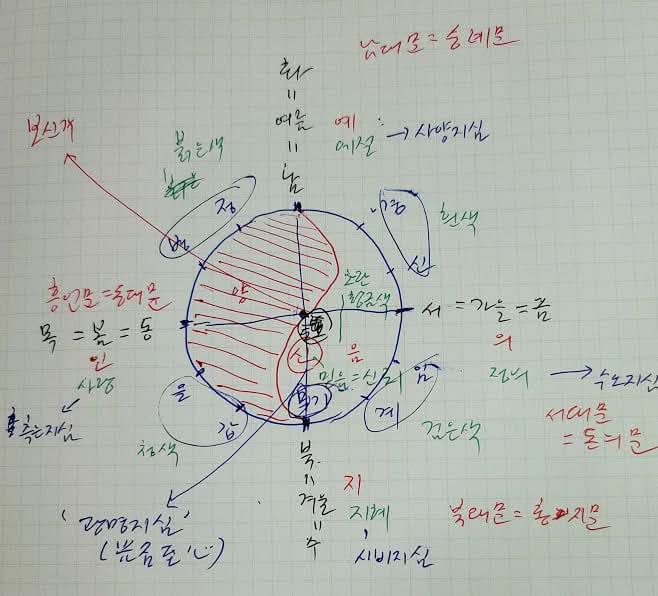 남대문=숭례문
화
=
여름
=
남
예
예절 → 사양지심
보신각
붉은색
병 정
경 신
흰색
흥인문=동대문
목 = 봄 = 동
인
사랑
측은지심
양
노란
황금색
서 = 가을 = 금
의
정의 → 수오지심
서대문
= 돈의문
신
음
믿음=신뢰
무기
을 갑
청색
임 계
검은색
북
=
겨울
=
수
지
지혜
시비지심
북대문=홍지문
'광명지심'